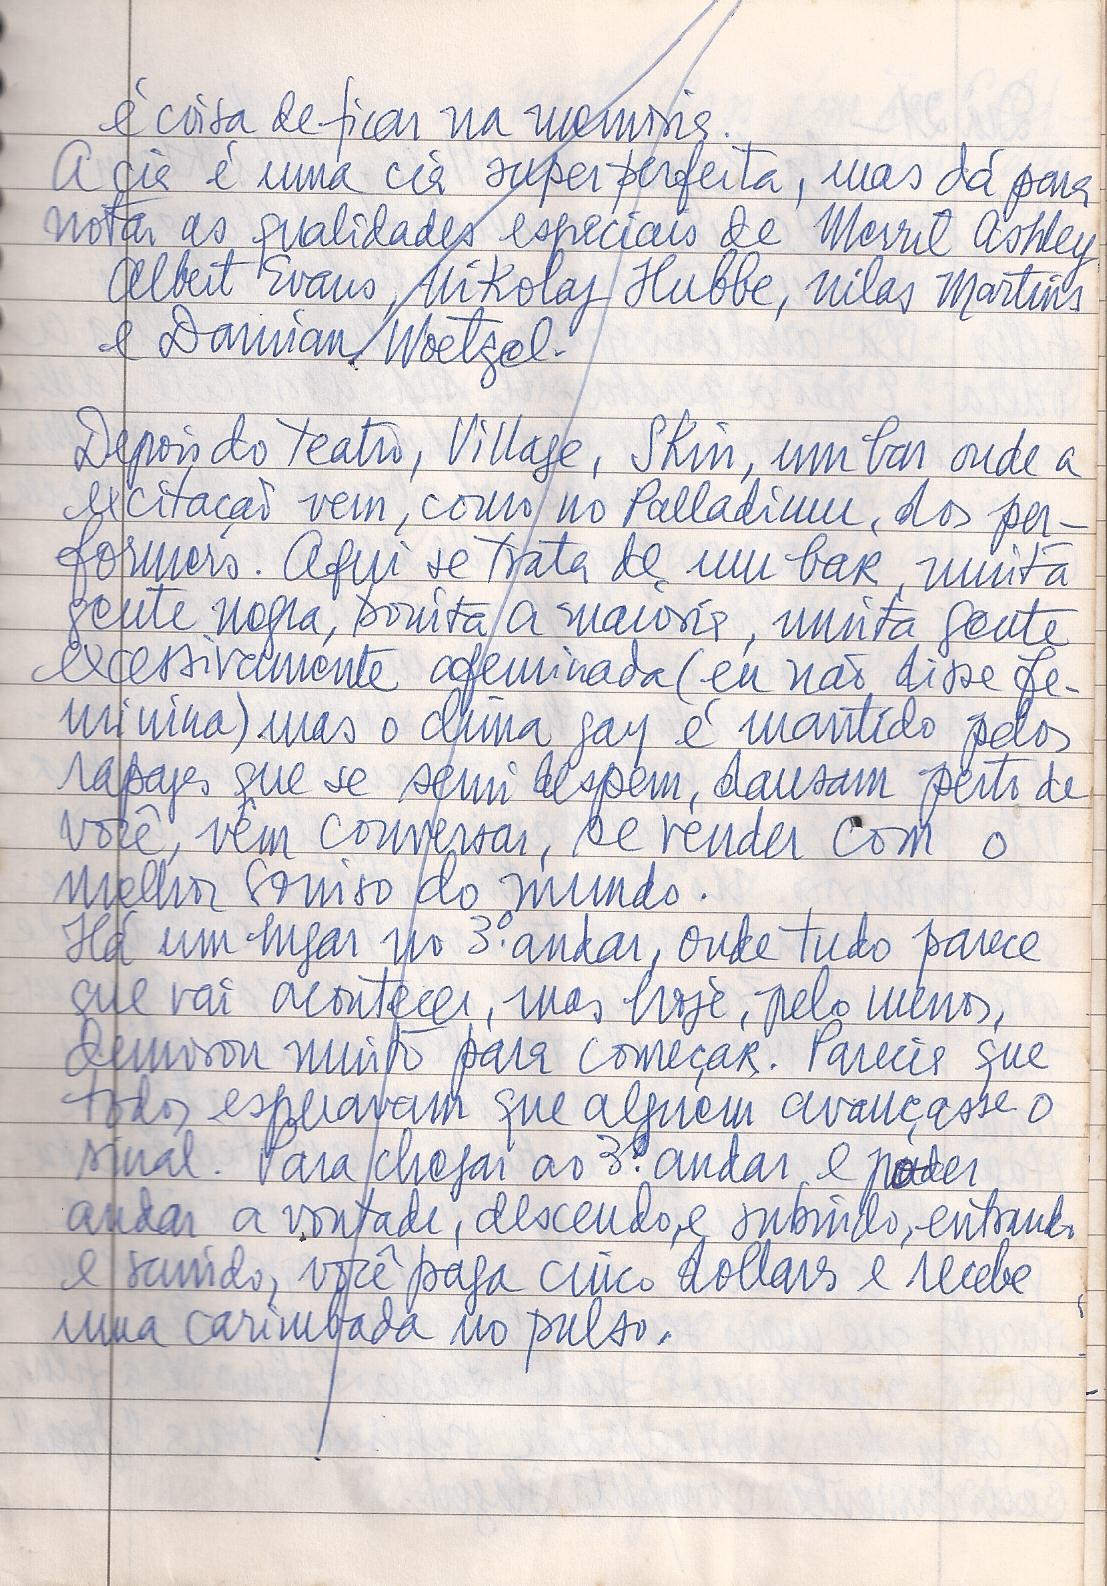 é coisa de ficar na memória.
A cia é uma cia superperfeita, mas dá para
notar as qualidades especiais de Merril Ashley
Albert Evans, Nikolaj Hubbe, Nilas Martins
e Damian Woetzel.
Depois do Teatro, Village, Skin, um bar onde a
excitação vem, como no Palladium, dos per-
formers. Aqui se trata de um bar, muita
gente negra, bonita a maioria, muita gente
excessivamente afeminada (eu não disse fe-
minina) mas o clima gay é mantido pelos
rapazes que se semi despem, dansam perto de
você, vêm conversar, se vender com o
melhor sorriso do mundo.
Há um lugar no 3º. andar, onde tudo parece
que vai acontecer, mas hoje, pelo menos,
demorou muito para começar. Parecia que
todos esperavam que alguém avançasse o
sinal. Para chegar ao 3º. andar e poder
andar a vontade, descendo, e subindo, entrando
e saindo, você paga cinco dollars e recebe
uma carimbada no pulso.